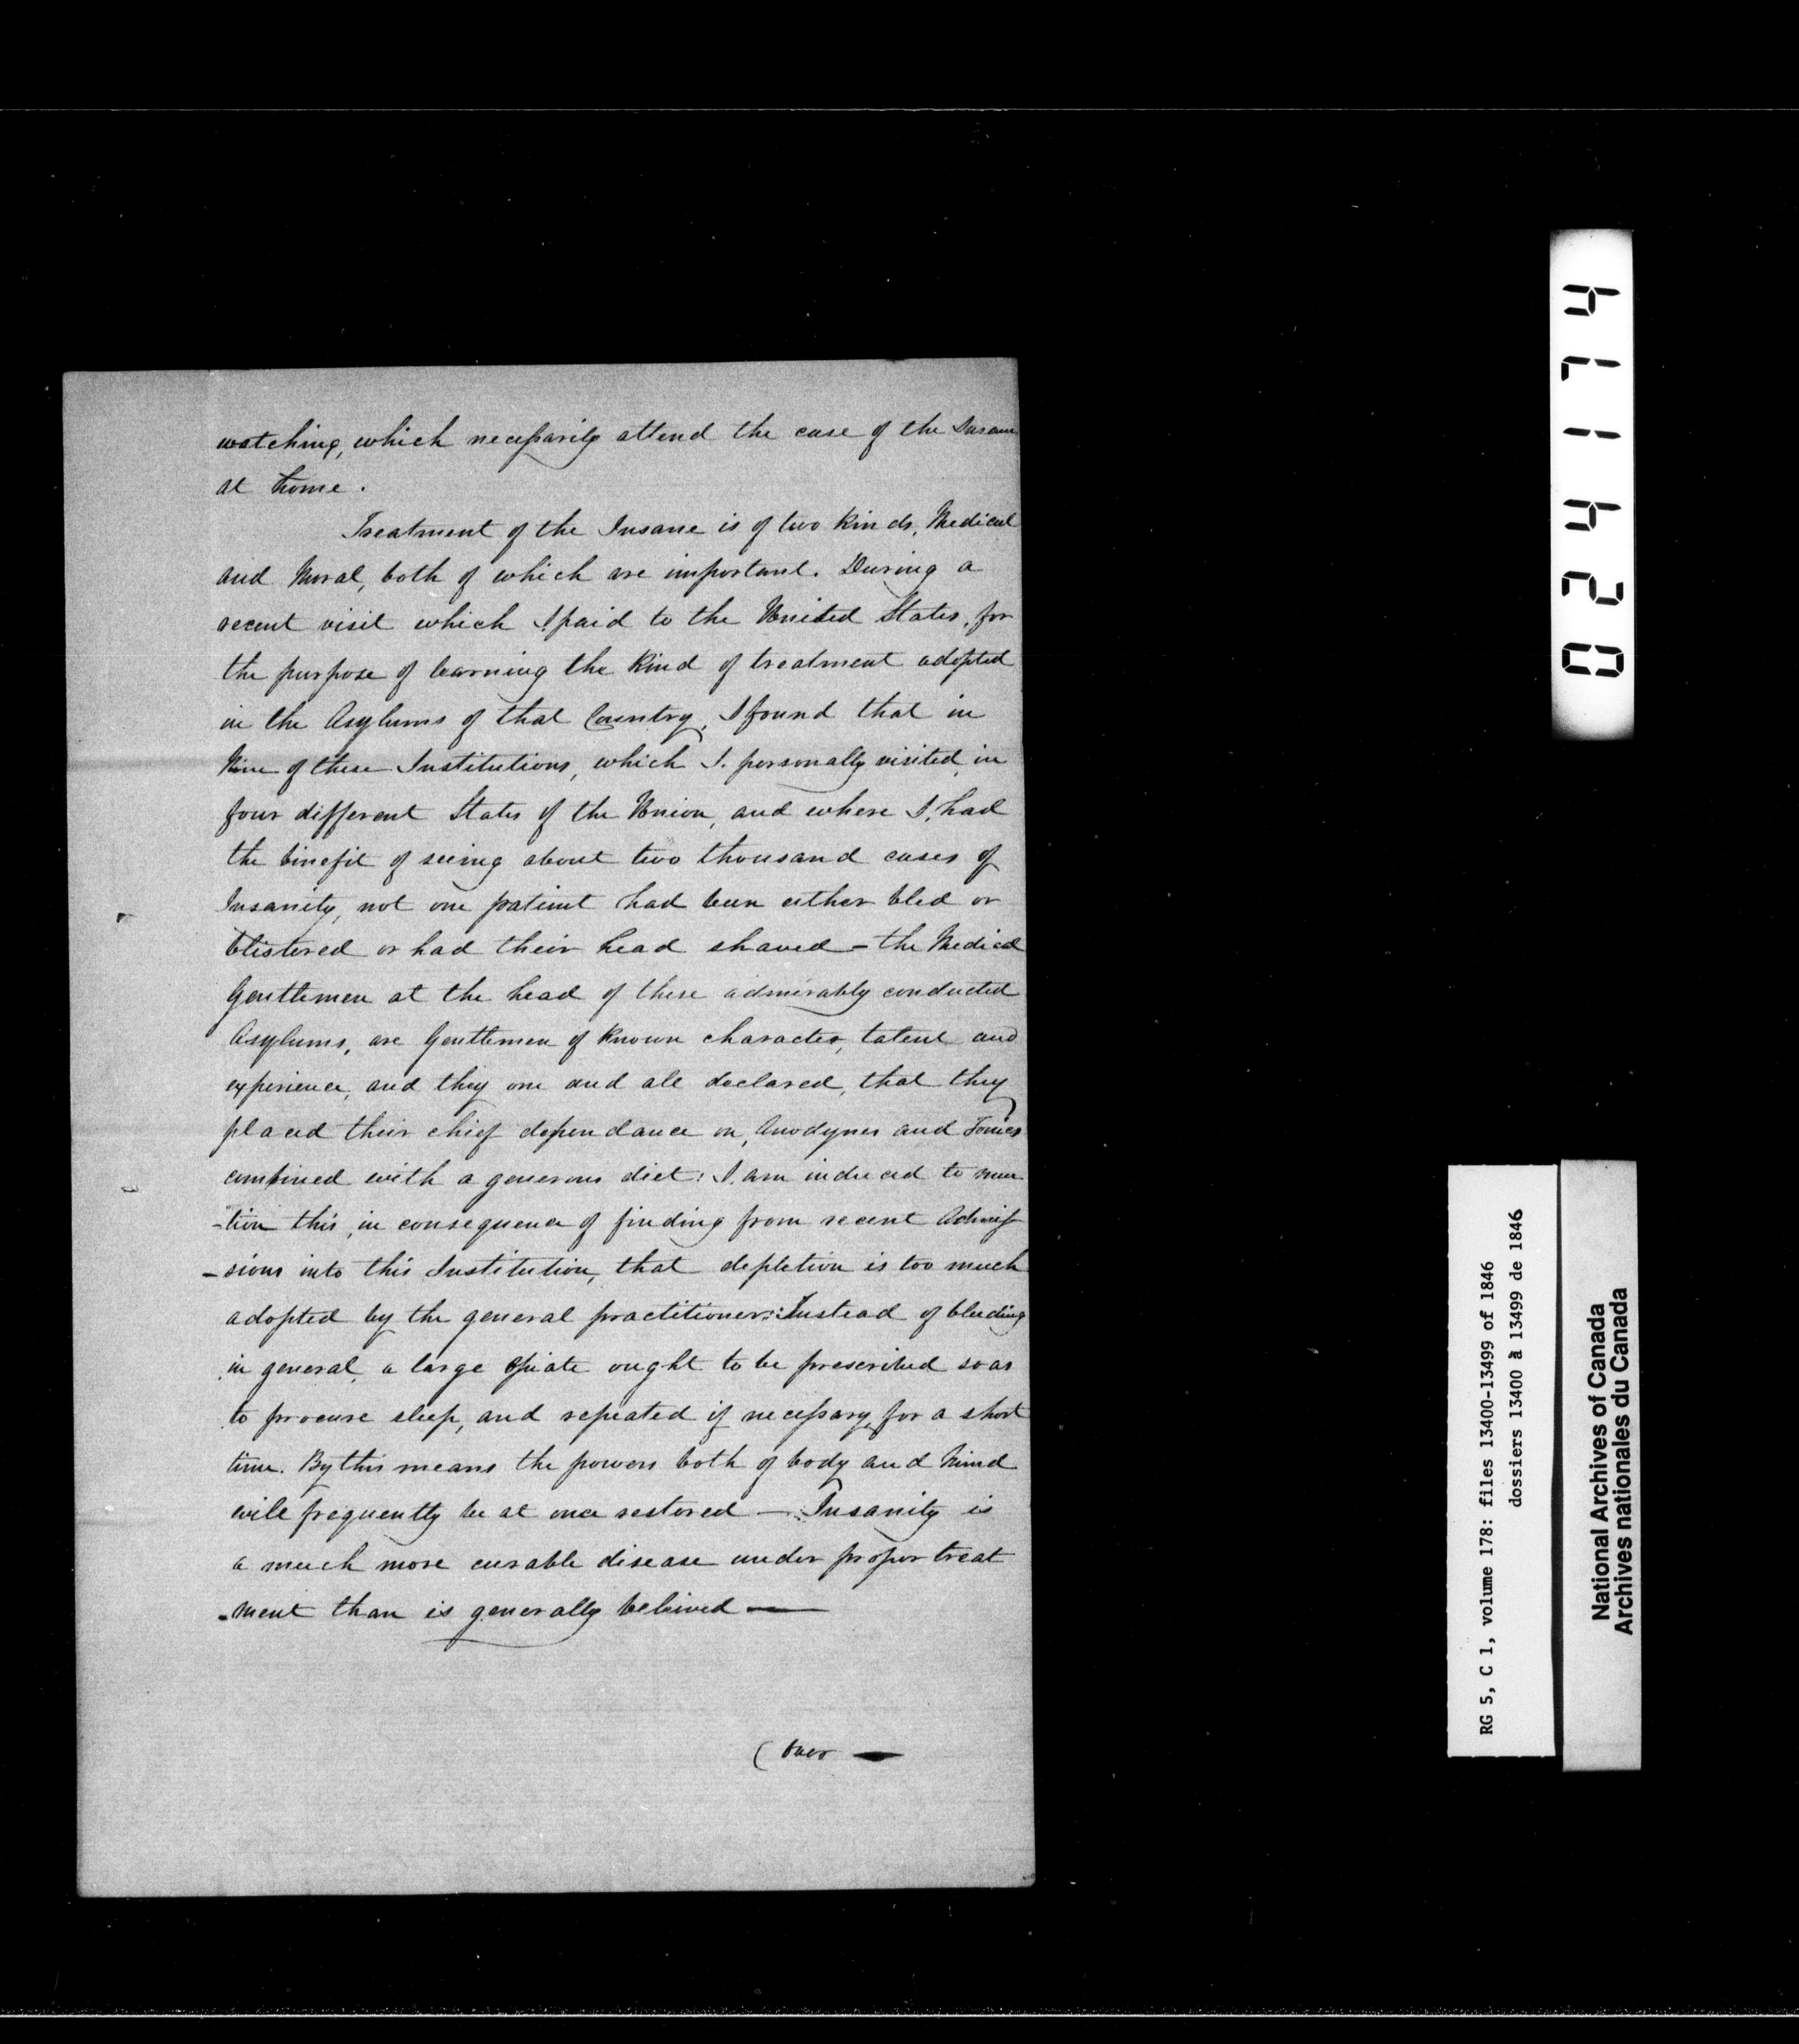 watching, which necessarily attend the case of the Insane
at home.
Treatment of the Insane is of two Kinds, Medical
and Moral, both of which are important. During a
recent visit which I paid to the United States, for
the purpose of learning the Kind of treatment adopted
in the Asylums of that Country, I found that in
Nine of these Institutions, which I personally visited, in
four different States of the Union, and where I had
the benefit of seeing about two thousand cases of
Insanity, not one patient had been either bled or
blistered or had their head shaved – the Medical
Gentlemen at the head of these admirably conducted
Asylums, are Gentlemen of Known character, talent and
experience, and they one and all declared, that they
placed their chief dependance on, Anodynes and Tonics
combined with a generous diet: I am induced to men
-tion this, in consequence of finding from recent Admis
-sions into this Institution, that depletion is too much
adopted by the general practitioner: Instead of bleeding
in general, a large Opiate ought to be prescribed so as
to procure sleep, and repeated if necessary, for a short
time. By this means the powers both of body and Mind
will frequently be at once restored — Insanity is
a much more curable disease under proper treat
-ment than is generally believed —
( over —
024174
RG 5, C 1, volume 178: files 13400-13499 of 1846
dossiers 13400 à 13499 de 1846
National Archives of Canada
Archives nationales du Canada